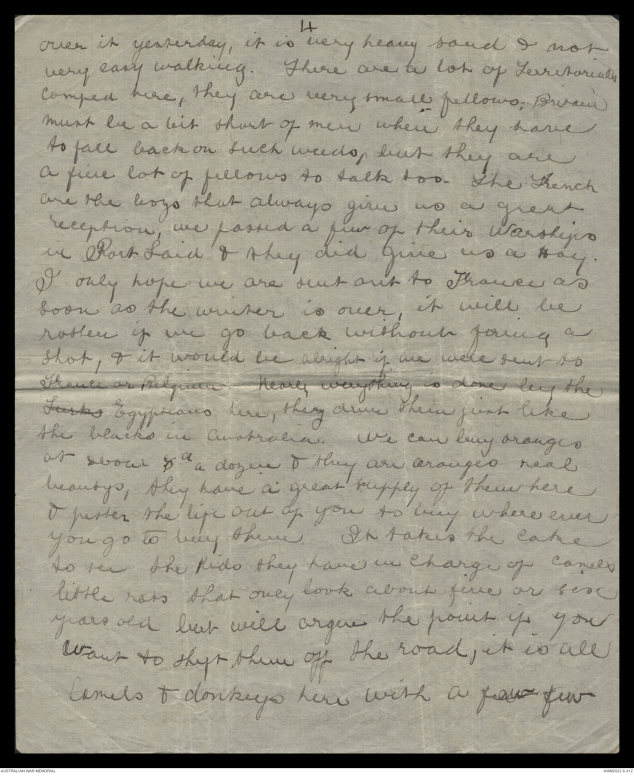 4
over it yesterday, it is very heavy sand & not
very easy walking. There are a lot of Territorials
camped here, they are very small fellows, Britain
must be a bit short of men when they have
to fall back on such weeds, but they are
a fine lot of fellows to talk too. The French
are the boys that always give us a great
reception, we passed a few of their Warships
in Port Said & they did give us a Hoy.
I only hope we are sent out to France as
soon as the winter is over, it will be
rotten if we go back without firing a
shot, & it would be alright if we were sent to
France or Belgium. Nearly everything is done by the
Turks Egyptians here, they drive them just like
the blacks in Australia. We can buy oranges
at about 8d a dozen & they are oranges real
beautys, they have a great supply of them here
& pester the life out of you to buy where ever
you go to buy them. It takes the cake
to see the kids they have in charge of camels
little rats that only look about five or six
years old but will argue the point if you
want to shift them off the road, it is all
Camels & donkeys here with a few few
AUSTRALIAN WAR MEMORIAL